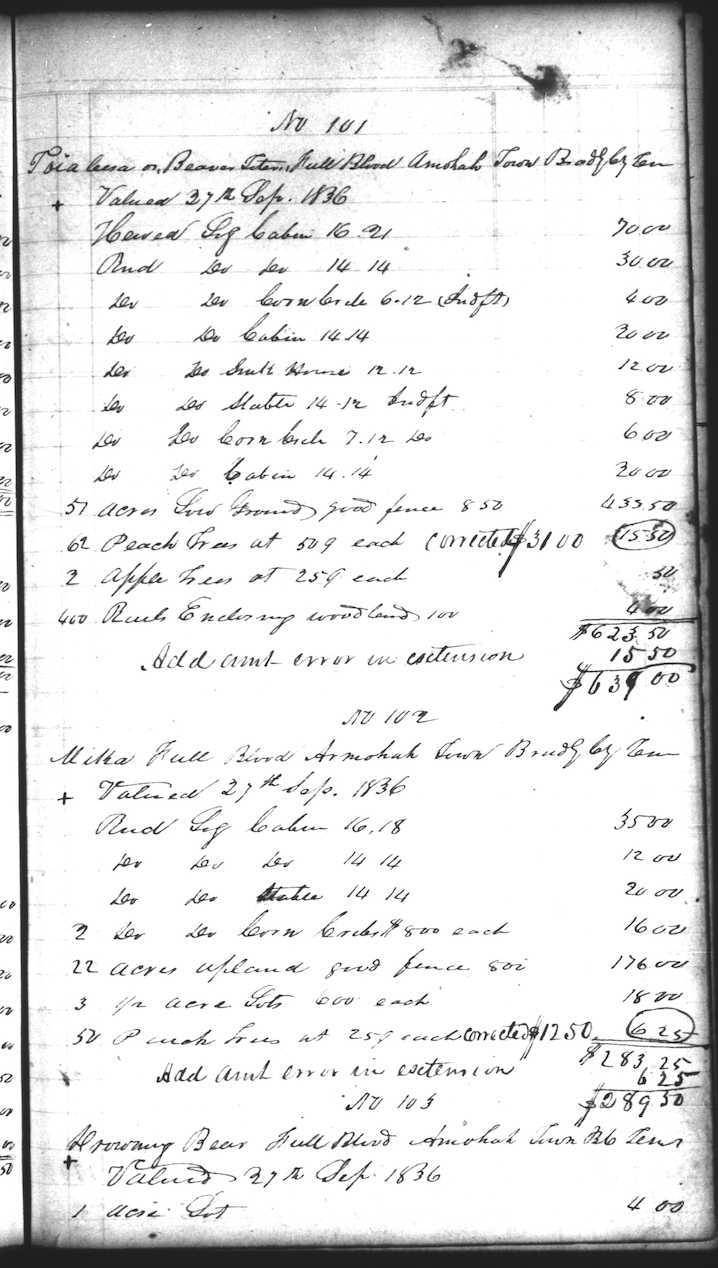 No 101
or Beaver Full Blood Amohah Town Bradly Cy Ten
+ Valued 27th Sep. 1836
Hewed Log Cabin 16.21 70 00
Rnd Do Do 14 14 30 00
Do Do Corn Crib 6.12 Indft 4 00
Do Do Cabin 14.14 20 00
Do Do House 12.12 12 00
Do Do Stable 14.12 Indft 8 00
Do Do Corn Crib 7.12 Do 6 00
Do Do Cabin 14.14 20 00
51 acres Low Ground good fence 8 50 433.50
62 Peach Trees at 50¢ each Corrected $31 00 15 50
2 Apple Trees at 25¢ each 50
400 Rails Enclosing woodland 1 00 4 00
$623.50
Add amt error in extension 15 50
$639 00
No 102
Full Blood Armohah Town Bradly Cy Ten
+ Valued 27th Sep. 1836
Rnd Log Cabin 16.18 35 00
Do Do Do 14 14 12 00
Do Do Stable 14 14 20 00
2 Do Do Corn Cribs $8 00 each 16 00
22 acres upland good fence 8 00 176 00
3 1/2 acre Lots 6 00 each 18 00
50 Peach Trees at 25¢ each Corrected $12 50 6 25
$283.25
Add amt error in extension 6 25
$289 50
No 103
Bear Full Blood Amohah Town B C Ten
+ Valued 27th Sep. 1836
1 acre Lot 4 00